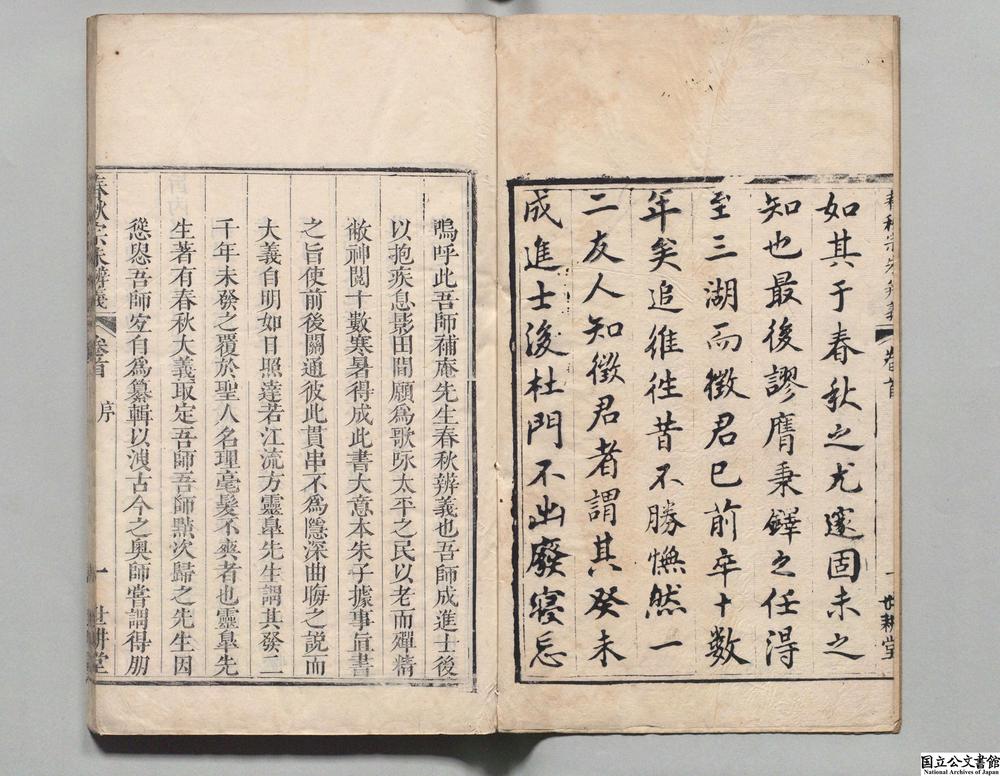 春秋宗朱辨義
卷首
一
世耕堂
如其于春秋之尤邃固未之
知也最後謬膺秉鐸之任得
至三湖而徵君已前卒十數
年矣追維往昔不勝憮然一
二友人知徵君者謂其癸未
成進士後杜門不出廢寢忘
嗚呼此吾師補庵先生春秋辨義也吾師成進士後
以抱疾息影田間願爲歌咏太平之民以老而殫精
敝神閱十數寒暑得成此書大意本朱子據事直書
之旨使前後關通彼此貫串不爲隱深曲晦之說而
大義自明如日照逵若江流方靈皐先生謂其發二
千年未發之覆於聖人名理毫髮不爽者也靈皐先
生著有春秋大義取定吾師吾師點次歸之先生因
慫恿吾師宜自爲纂輯以洩古今之奧師嘗謂得朋
春秋宗朱辨義
卷首
序
一
世耕堂
国立公文書館
National Archives of Japan